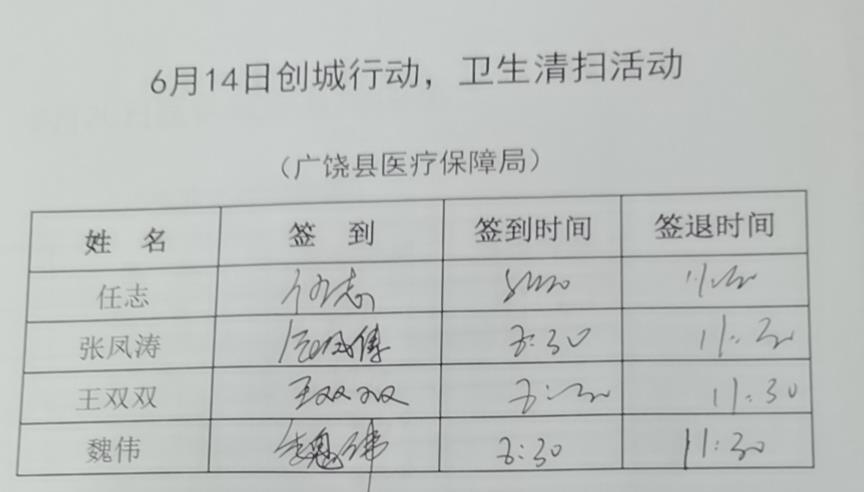 6月14日创城行动，卫生清扫活动
（广饶县医疗保障局）
姓 名 签 到 签到时间 签退时间
任志 任志
张凤涛 11:30
王双双 王双双 11:30
魏伟 魏伟 8:30 11:30